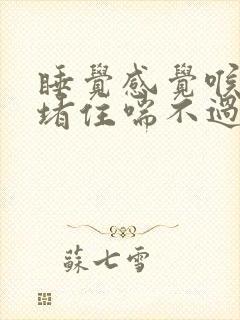 睡覺感覺喉
堵住喘不過
蘇七雪